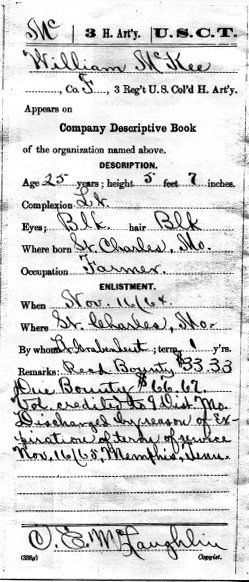 Mc | 3 H. Art'y. | U.S.C.T.
William McKee
, Co. F, 3 Reg't U.S. Col'd H. Art'y.
Appears on
Company Descriptive Book
of the organization named above.
DESCRIPTION.
Age 25 years; height 5 feet 7 inches.
Complexion Lt.
Eyes; Blk. hair Blk
Where born St. Charles, Mo.
Occupation Farmer.
ENLISTMENT.
When Nov. 16/64.
Where St. Charles, Mo.
By whom ; term 1 y'rs.
Remarks: Recd Bounty $33.33
Due Bounty $66.67
Vol. credited to 9 Dist. Mo.
Discharged by reason of Ex-
piration of term of service
Nov. 16/65, Memphis, Tenn.
McLaughlin
(338g) Copyist.